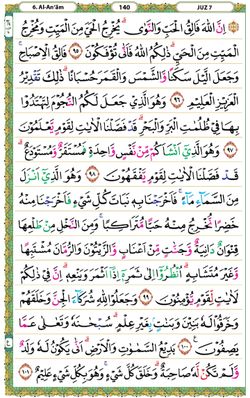 6. Al-An'ām 140 JUZ 7
اِنَّ اللّٰهَ فَالِقُ الْحَبِّ وَالنَّوٰىۗ يُخْرِجُ الْحَيَّ مِنَ الْمَيِّتِ وَمُخْرِجُ
الْمَيِّتِ مِنَ الْحَيِّ ذٰلِكُمُ اللّٰهُ فَاَنّٰى تُؤْفَكُوْنَ ٩٥ فَالِقُ الْاِصْبَاحِۚ
وَجَعَلَ الَّيْلَ سَكَنًا وَّالشَّمْسَ وَالْقَمَرَ حُسْبَانًاۗ ذٰلِكَ تَقْدِيْرُ
الْعَزِيْزِ الْعَلِيْمِ ٩٦ وَهُوَ الَّذِيْ جَعَلَ لَكُمُ النُّجُوْمَ لِتَهْتَدُوْا
بِهَا فِيْ ظُلُمٰتِ الْبَرِّ وَالْبَحْرِۗ قَدْ فَصَّلْنَا الْاٰيٰتِ لِقَوْمٍ يَّعْلَمُوْنَ
٩٧ وَهُوَ الَّذِيْٓ اَنْشَاَكُمْ مِّنْ نَّفْسٍ وَّاحِدَةٍ فَمُسْتَقَرٌّ وَّمُسْتَوْدَعٌۗ
قَدْ فَصَّلْنَا الْاٰيٰتِ لِقَوْمٍ يَّفْقَهُوْنَ ٩٨ وَهُوَ الَّذِيْٓ اَنْزَلَ
مِنَ السَّمَاۤءِ مَاۤءًۚ فَاَخْرَجْنَا بِهٖ نَبَاتَ كُلِّ شَيْءٍ فَاَخْرَجْنَا مِنْهُ
خَضِرًا نُّخْرِجُ مِنْهُ حَبًّا مُّتَرَاكِبًاۚ وَمِنَ النَّخْلِ مِنْ طَلْعِهَا
قِنْوَانٌ دَانِيَةٌ وَّجَنّٰتٍ مِّنْ اَعْنَابٍ وَّالزَّيْتُوْنَ وَالرُّمَّانَ مُشْتَبِهًا
وَّغَيْرَ مُتَشَابِهٍۗ اُنْظُرُوْٓا اِلٰى ثَمَرِهٖٓ اِذَٓا اَثْمَرَ وَيَنْعِهٖۗ اِنَّ فِيْ ذٰلِكُمْ
لَاٰيٰتٍ لِّقَوْمٍ يُّؤْمِنُوْنَ ٩٩ وَجَعَلُوْا لِلّٰهِ شُرَكَاۤءَ الْجِنَّ وَخَلَقَهُمْ
وَخَرَقُوْا لَهٗ بَنِيْنَ وَبَنٰتٍۢ بِغَيْرِ عِلْمٍۗ سُبْحٰنَهٗ وَتَعٰلٰى عَمَّا
يَصِفُوْنَ ١٠٠ بَدِيْعُ السَّمٰوٰتِ وَالْاَرْضِۗ اَنّٰى يَكُوْنُ لَهٗ وَلَدٌ
وَّلَمْ تَكُنْ لَّهٗ صَاحِبَةٌۗ وَخَلَقَ كُلَّ شَيْءٍۚ وَهُوَ بِكُلِّ شَيْءٍ عَلِيْمٌ ١٠١